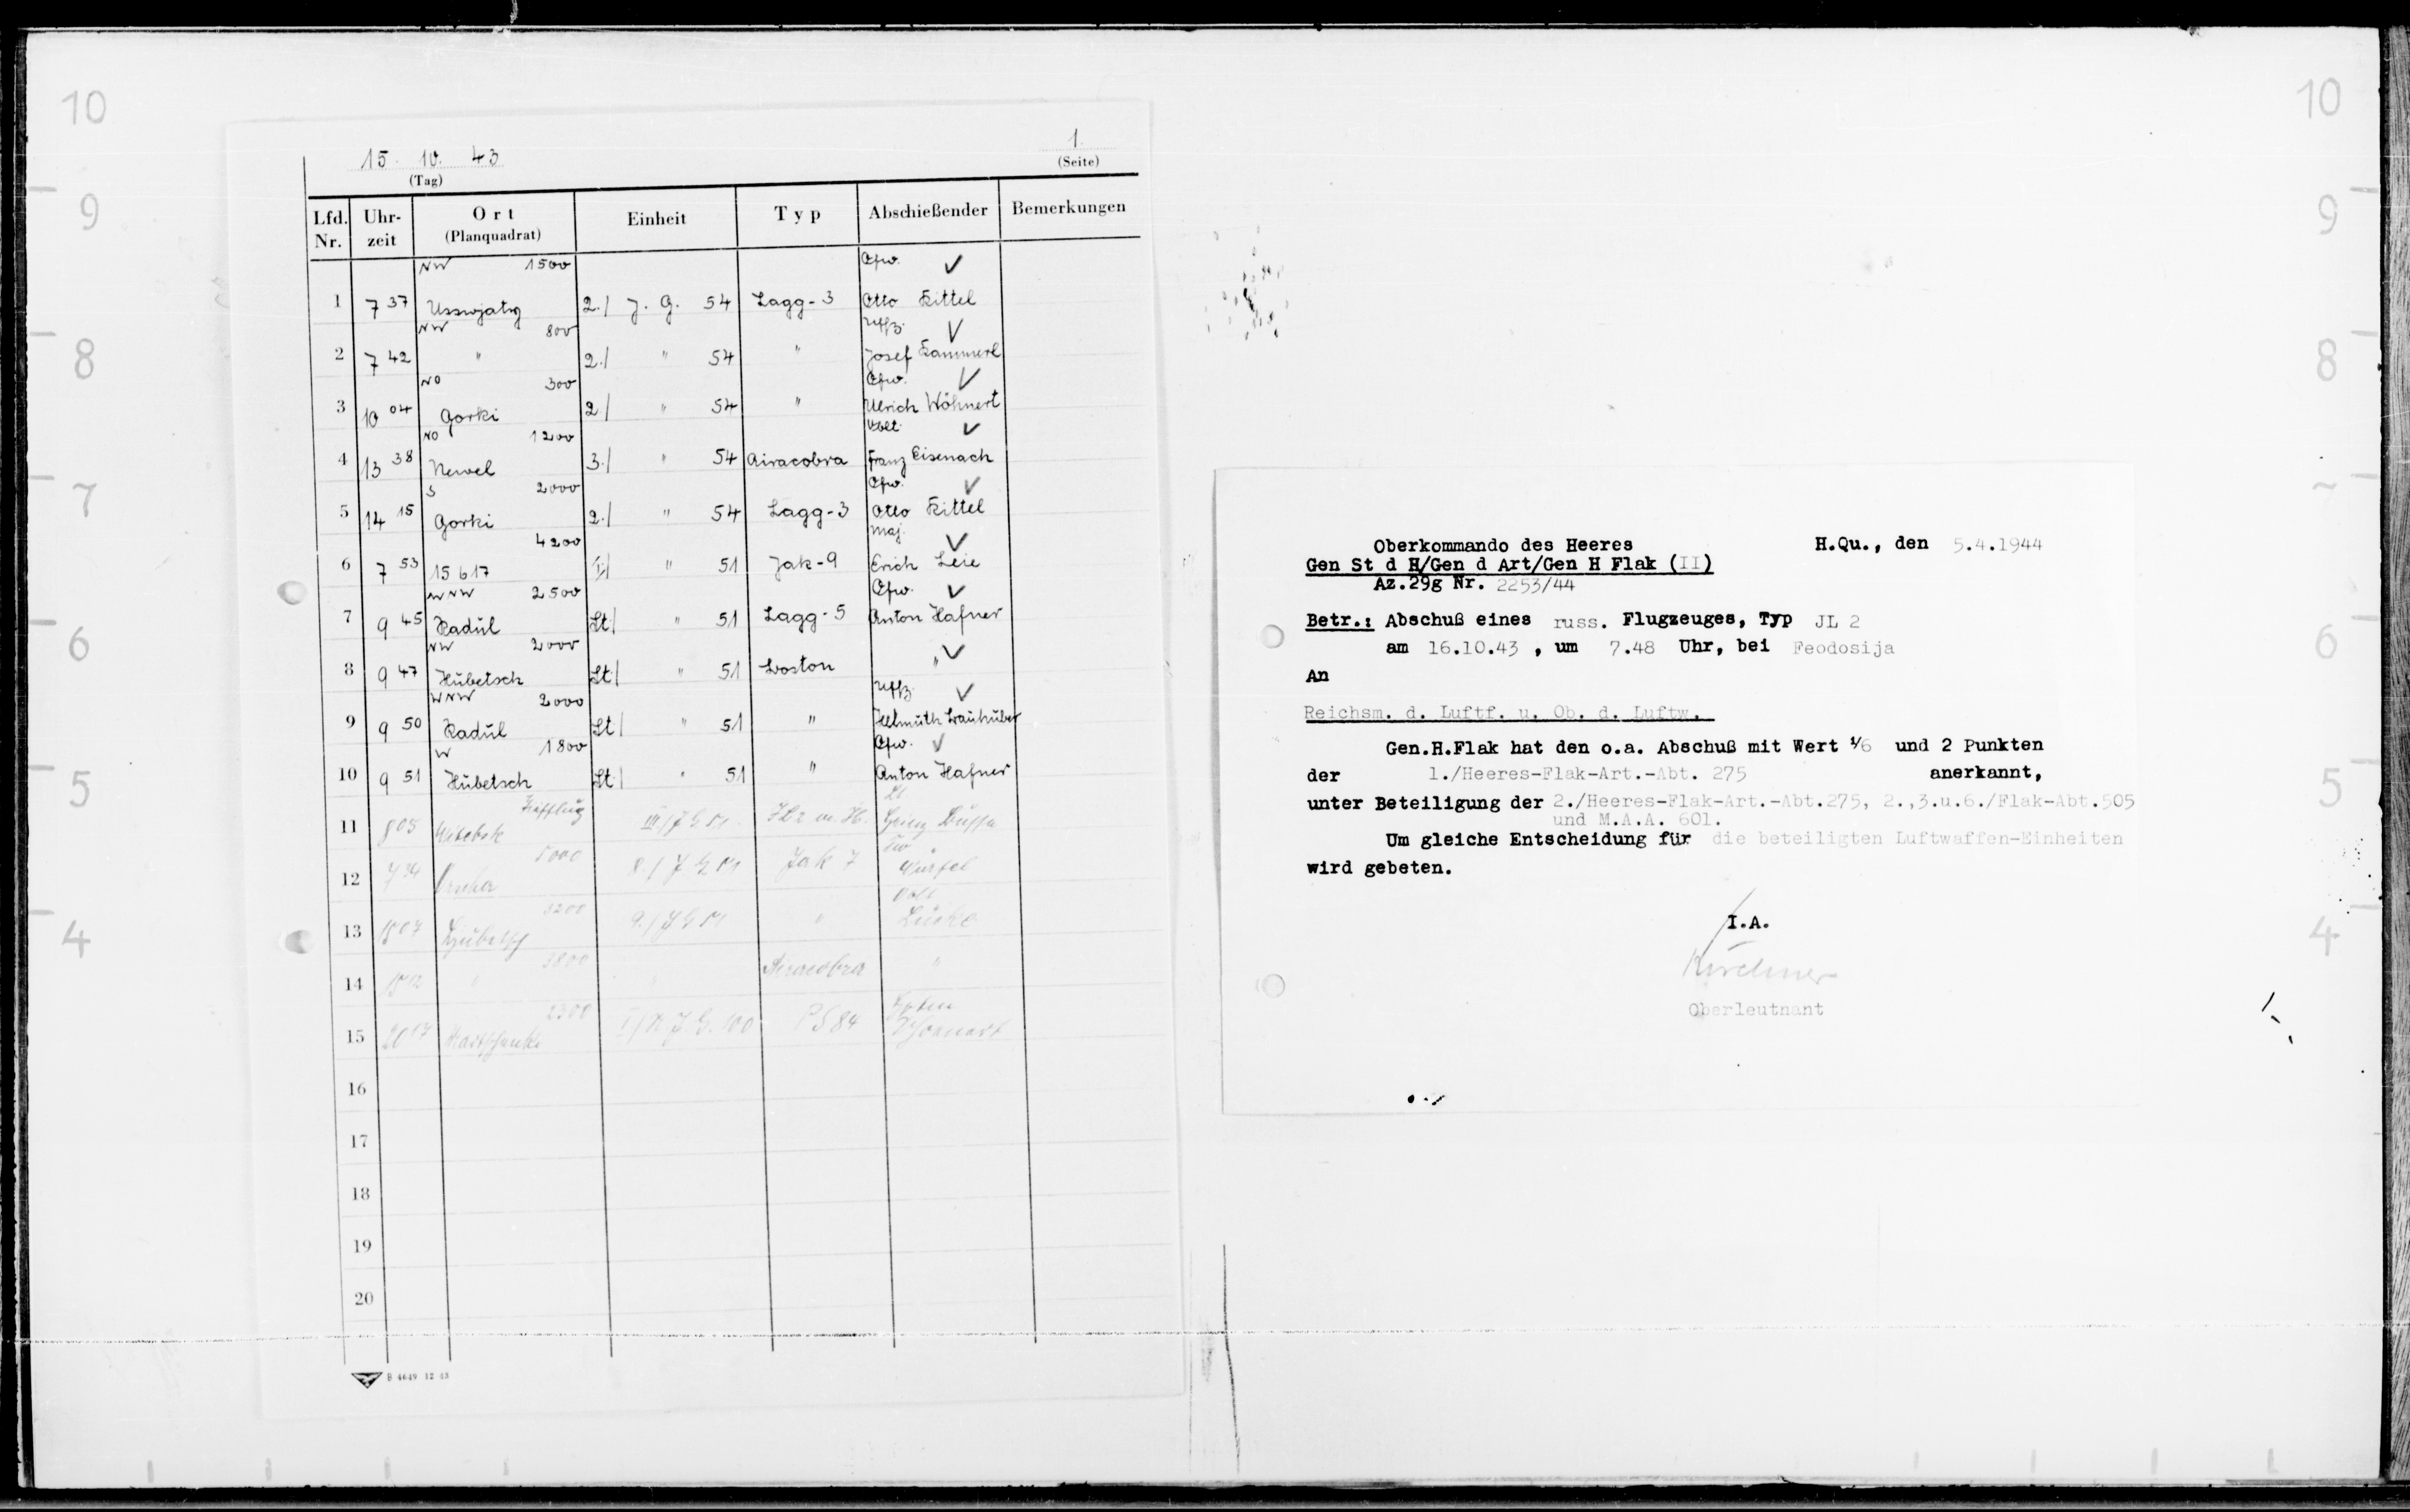 10
9
8
7
6
5
4
15. 10. 43
(Tag)
1.
(Seite)
Lfd. Nr. Uhr-zeit Ort (Planquadrat) Einheit Typ Abschießender Bemerkungen
NW 1500 Ofw. ✓
1 7 37 2./ J. G. 54 Lagg-3 Otto Kittel
NW 800 Uffz. ✓
2 7 42 " 2./ " 54 " Josef Kammerl
NO 300 Ofw. ✓
3 10 04 Gorki 2/ " 54 " Ulrich Wöhnert
NO 1200 Oblt. ✓
4 13 38 Newel 3./ " 54 Airacobra Franz Eisenach
S 2000 Ofw. ✓
5 14 15 Gorki 2./ " 54 Lagg-3 Otto Kittel
4200 Maj. ✓
6 7 53 15 617 I/ " 51 Jak-9 Erich Leie
WNW 2500 Ofw. ✓
7 9 45 Radul St./ " 51 Lagg-5 Anton Hafner
NW 2000 ✓
8 9 47 Hubetsch St./ " 51 Boston "
WNW 2000 Uffz. ✓
9 9 50 Radul St./ " 51 " Helmuth
W 1800 Ofw. ✓
10 9 51 Hubetsch St./ " 51 " Anton Hafner
Lt
11 8 05 Witebsk III/JG 51
5000
12 8./JG 51 Jak 7
3200
13 9./JG 51 "
3800
14 " Airacobra "
2300
15 20 17 I/N.J.G. 100 PS 84
16
17
18
19
20
B 4649 12 43
Oberkommando des Heeres H.Qu., den 5.4.1944
Gen St d H/Gen d Art/Gen H Flak (II)
Az.29g Nr. 2253/44
Betr.: Abschuß eines russ. Flugzeuges, Typ JL 2
am 16.10.43 , um 7.48 Uhr, bei Feodosija
An
Reichsm. d. Luftf. u. Ob. d. Luftw.
Gen.H.Flak hat den o.a. Abschuß mit Wert 1/6 und 2 Punkten
der 1./Heeres-Flak-Art.-Abt. 275 anerkannt,
unter Beteiligung der 2./Heeres-Flak-Art.-Abt.275, 2.,3.u.6./Flak-Abt.505
und M.A.A. 601.
Um gleiche Entscheidung für die beteiligten Luftwaffen-Einheiten
wird gebeten.
I.A.
Kirchner
Oberleutnant
10
9
8
6
5
4